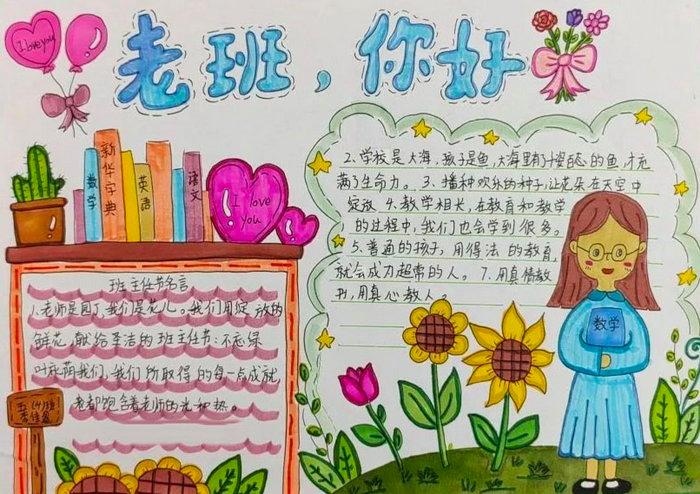 I love you
老班，你好
数学
新华字典
英语
语文
I love
you
班主任节名言
1.老师是园丁,我们是花儿。我们用绽放的
鲜花,献给圣洁的班主任节:不起绿
叶我们,我们所取得的每一点成就,
老都饱含着老师的光和热。
五
2、学校是大海,孩子是鱼,大海里有了姿百态的鱼,才充
满了生命力。3、播种欢乐的种子,让花朵在天空中
绽放 4、教学相长,在教育和教学
的过程中,我们也会学到很多。
5、普通的孩子,用得法的教育,
就会成为超常的人。7、用真情教
书,用真心教人。
数学